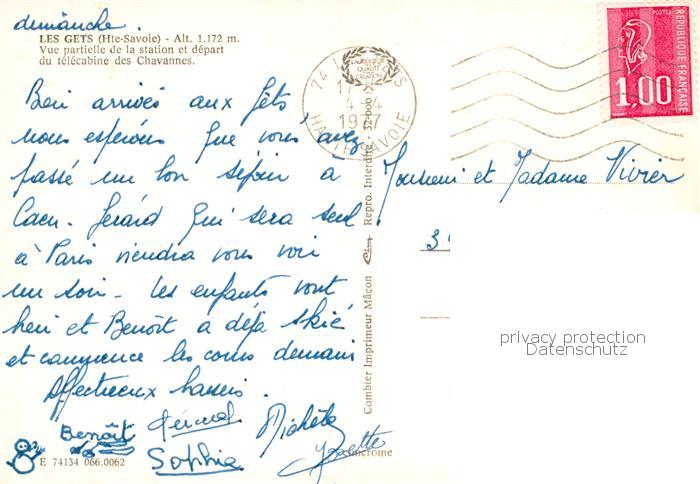 dimanche.
LES GETS (Hte-Savoie) - Alt. 1.172 m.
Vue partielle de la station et départ
du télécabine des Chavannes.
Bien arrivés aux Gets
nous espérons que vous avez
passé un bon séjour à
Caen. Gérard qui sera seul
à Paris viendra vous voir
un soir - Les enfants vont
bien et Benoît a déjà skié
et commence les cours demain
Affectueux baisers.
Benoît Gérard Michèle
Sophie Yvette
E 74134 066.0062
Combier Imprimeur Mâcon Cim Repro. Interdite
LABEL DE QUALITÉ CRÉATION
74 LES GETS
4-4
1977
HAUTE-SAVOIE
POSTES
1,00
REPUBLIQUE FRANÇAISE
Monsieur et Madame Vivier
3
privacy protection
Datenschutz